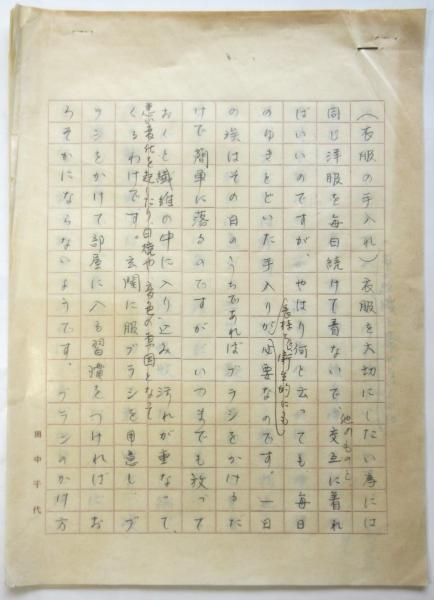 (衣服の手入れ)衣服を大切にしたい為には
同じ洋服を毎日続けて着ないで、他のものと交互に着れ
ばいいのですが、やはり何と云っても毎日
のゆきとどいた手入りが愈様にも衛生的にも必要なのです。一日
の埃はその日のうちであればブラシをかけた
けで簡単に落るのですがいつまでも放って
おくと繊維の中に入り込み汚れが重なって、
悪い変化を起したり、日焼や変色の原因となって
くるわけです。玄関に服ブラシを用意し、ブ
ラシをかけて部屋に入る習慣をつければお
ろそかにならないようです。ブラシのかけ方
田中千代